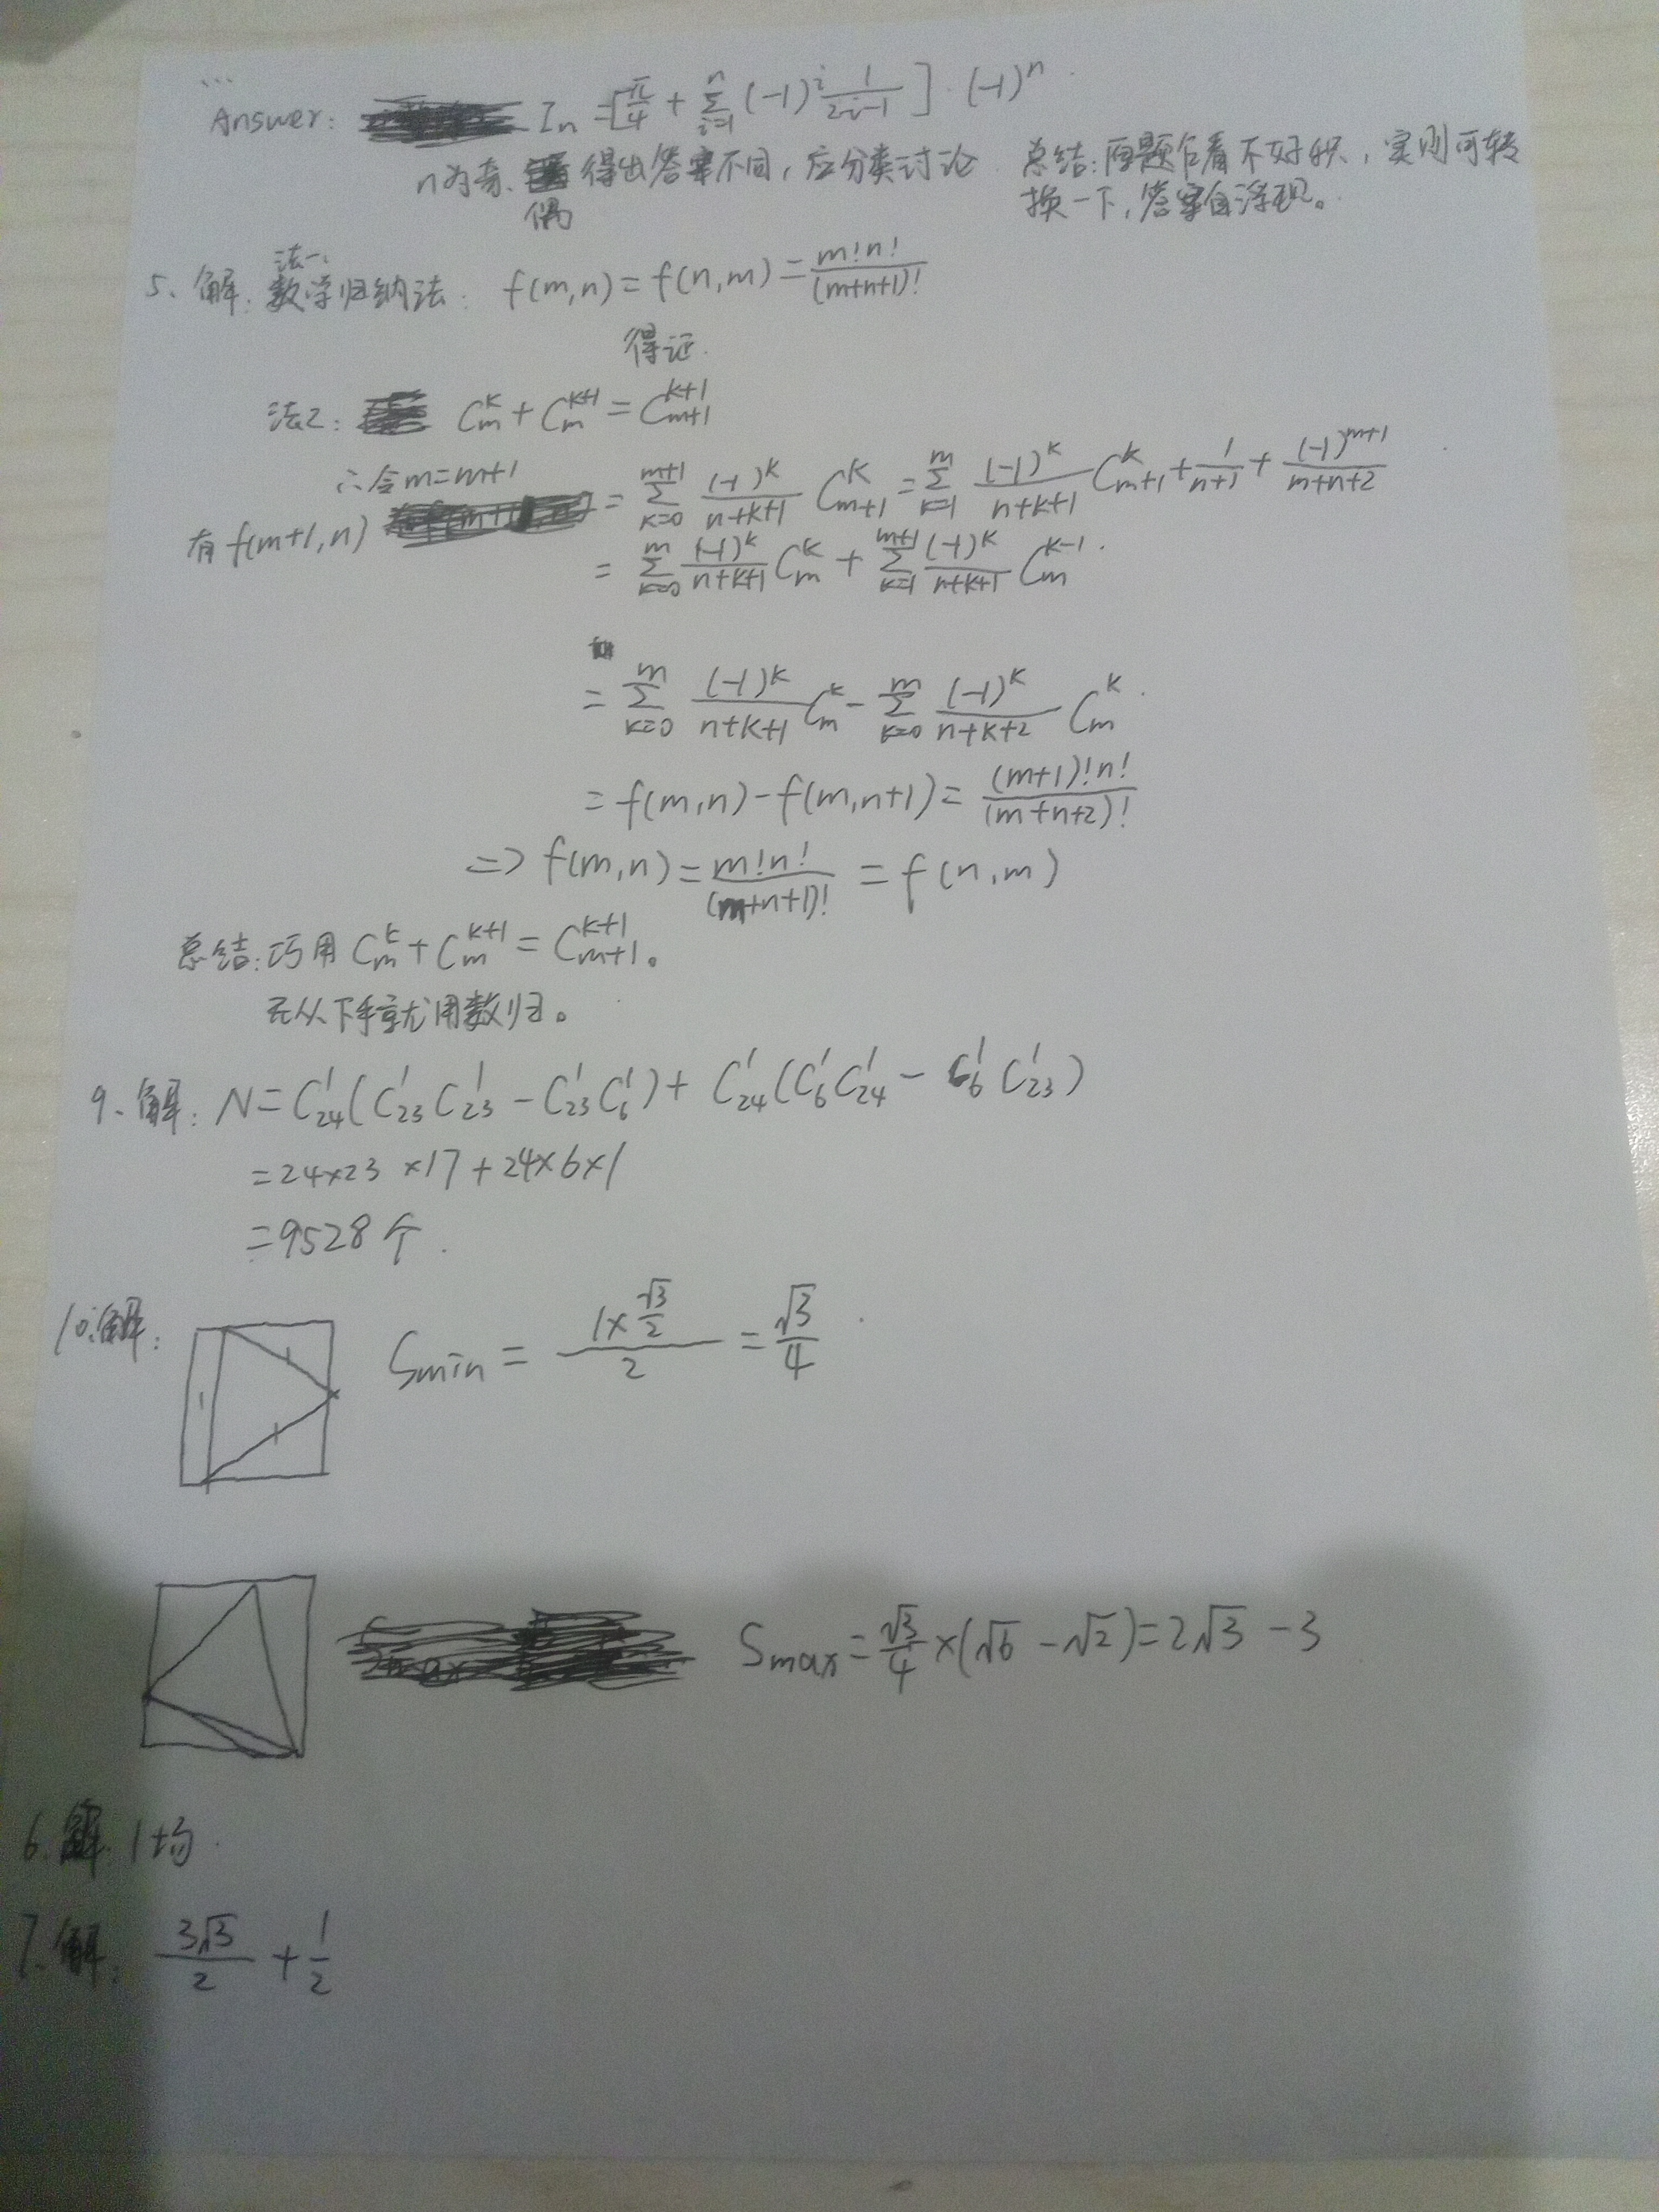 ...
Answer: Iₙ = [π/4 + Σ_{i=1}^{n} (-1)^i 1/(2i-1)] · (-1)^n
n为奇、偶 得出答案不同，应分类讨论
总结：原题乍看不好积，实则可转
换一下，答案自浮现。
5、解：法一、数学归纳法： f(m,n) = f(n,m) = m!n!/(m+n+1)!
得证.
法2： C_m^k + C_m^{k+1} = C_{m+1}^{k+1}
∴令m=m+1
有f(m+1,n) = Σ_{k=0}^{m+1} (-1)^k/(n+k+1) C_{m+1}^k = Σ_{k=1}^{m} (-1)^k/(n+k+1) C_{m+1}^k + 1/(n+1) + (-1)^{m+1}/(m+n+2)
= Σ_{k=0}^{m} (-1)^k/(n+k+1) C_m^k + Σ_{k=1}^{m+1} (-1)^k/(n+k+1) C_m^{k-1}.
= Σ_{k=0}^{m} (-1)^k/(n+k+1) C_m^k - Σ_{k=0}^{m} (-1)^k/(n+k+2) C_m^k.
= f(m,n) - f(m,n+1) = (m+1)!n!/(m+n+2)!
=> f(m,n) = m!n!/(m+n+1)! = f(n,m)
总结：巧用 C_m^k + C_m^{k+1} = C_{m+1}^{k+1}。
无从下手就用数归。
9、解： N = C_{24}^1 (C_{23}^1 C_{23}^1 - C_{23}^1 C_6^1) + C_{24}^1 (C_6^1 C_{24}^1 - C_6^1 C_{23}^1)
= 24×23×17 + 24×6×1
= 9528个.
10.解： Smin = (1×√3/2)/2 = √3/4.
1 1 1
Smax = √3/4 × (√6 - √2) = 2√3 - 3
6.解. 1均.
7.解： 3√3/2 + 1/2